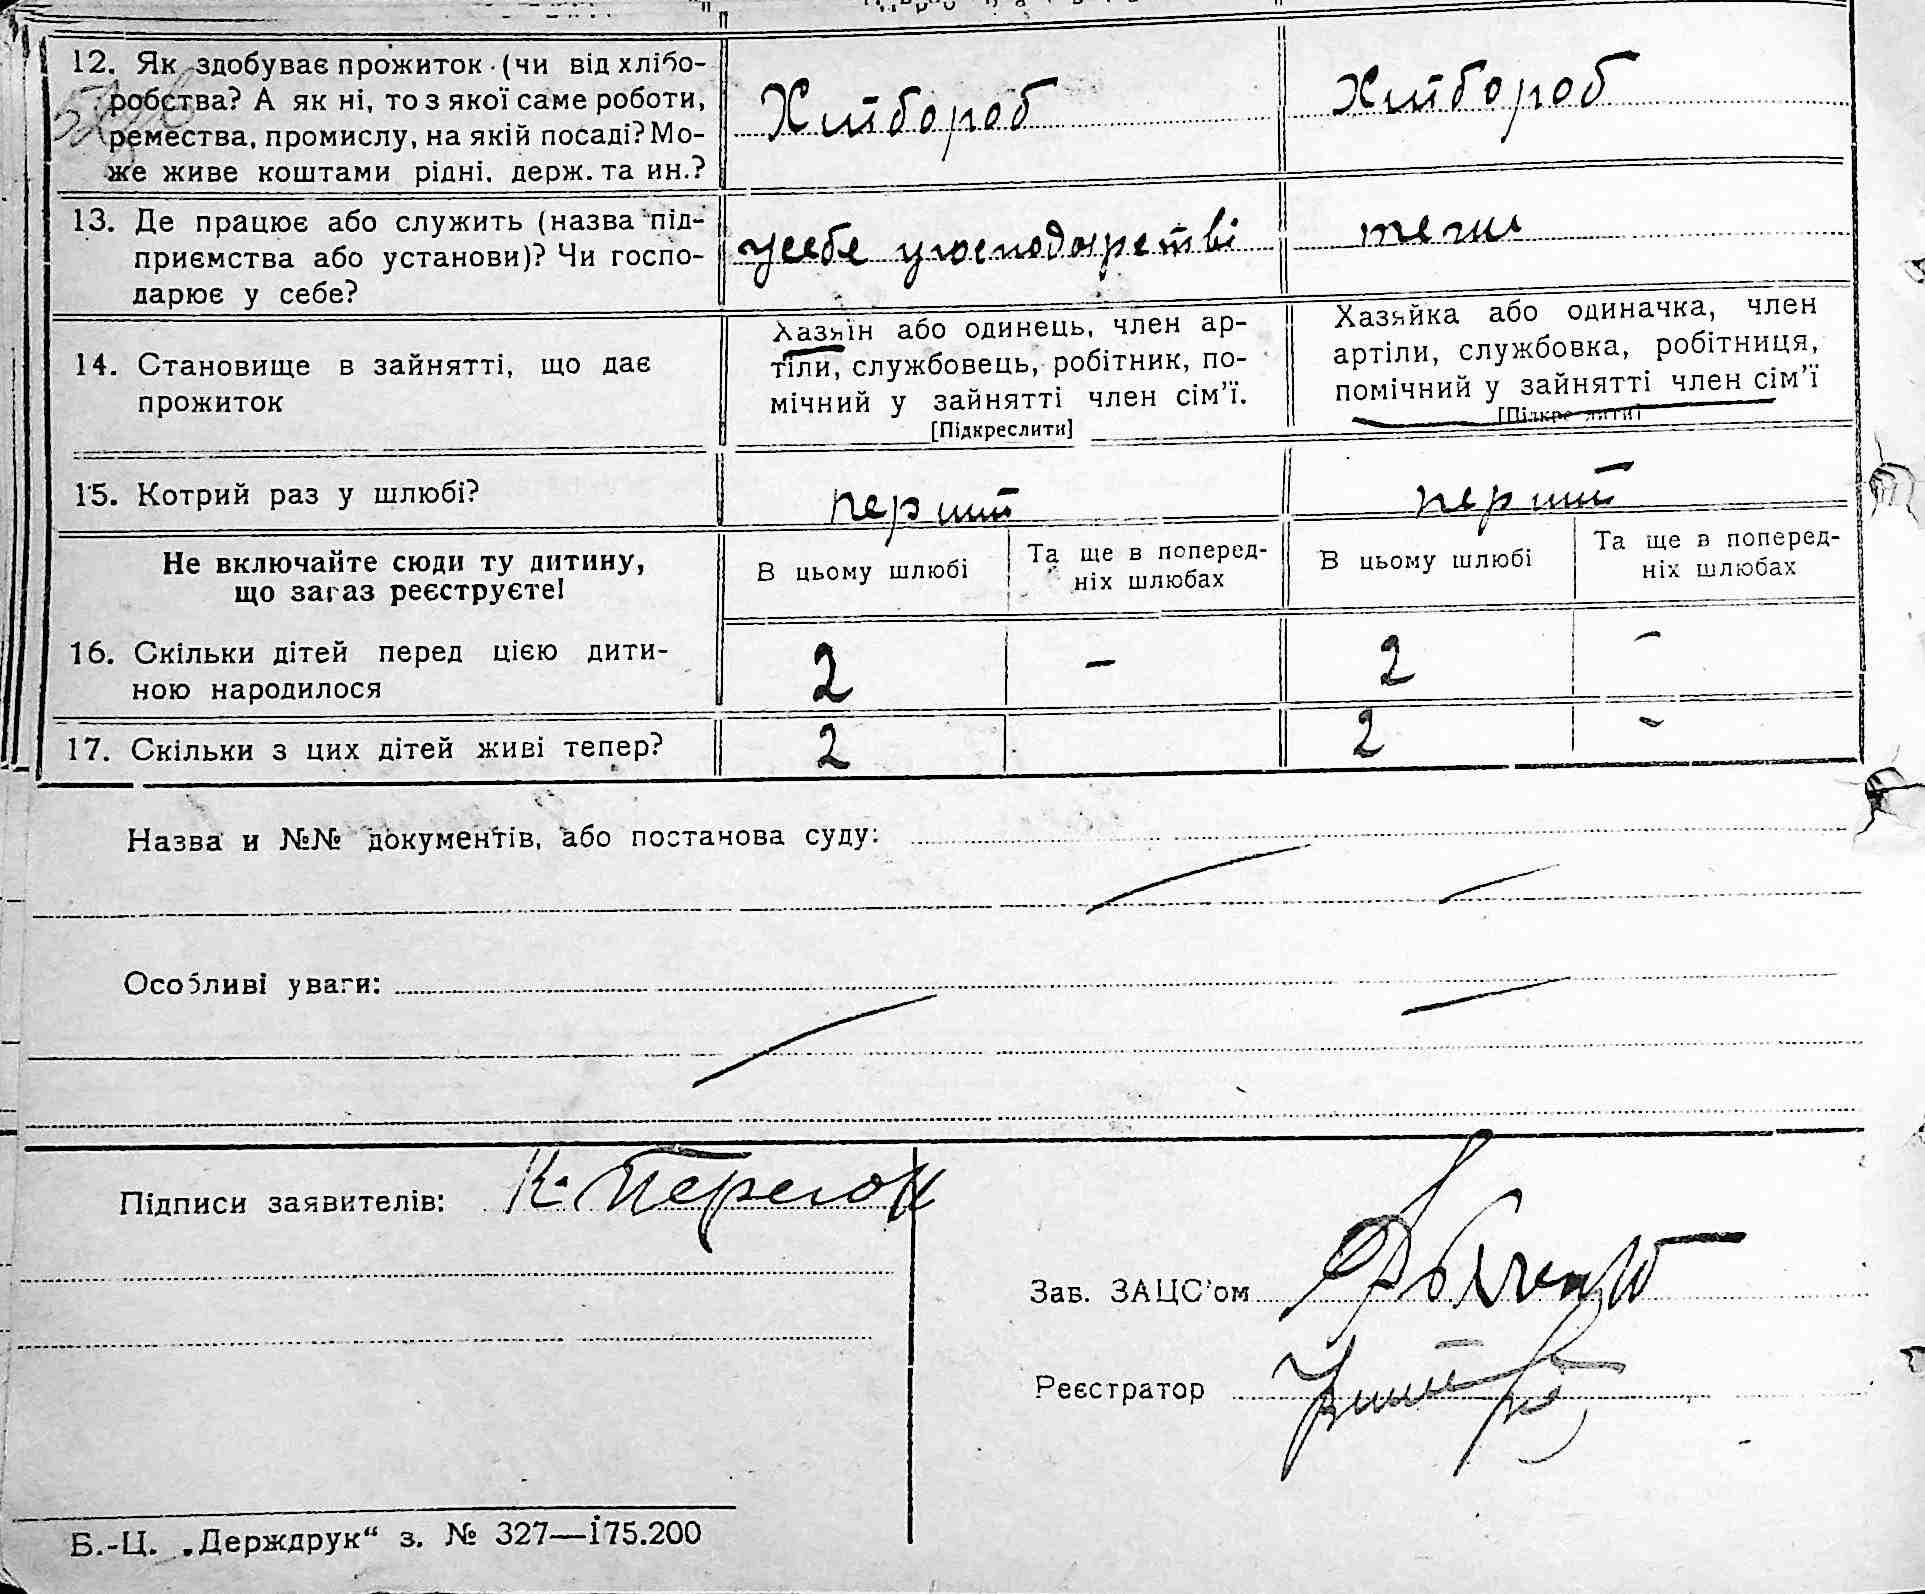 12. Як здобуває прожиток (чи від хлібо-
робства? А як ні, то з якої саме роботи,
ремества, промислу, на якій посаді? Мо-
же живе коштами рідні. держ. та ин.?
Хлібороб
Хлібороб
13. Де працює або служить (назва під-
приємства або установи)? Чи госпо-
дарює у себе?
усебе угосподарстві
теж
14. Становище в зайнятті, що дає
прожиток
Хазяїн або одинець, член ар-
тіли, службовець, робітник, по-
мічний у зайнятті член сім’ї.
[Підкреслити]
Хазяйка або одиначка, член
артіли, службовка, робітниця,
помічний у зайнятті член сім’ї
[Підкреслити]
15. Котрий раз у шлюбі?
перший
перший
Не включайте сюди ту дитину,
що зараз реєструєте!
В цьому шлюбі
Та ще в поперед-
ніх шлюбах
В цьому шлюбі
Та ще в поперед-
ніх шлюбах
16. Скільки дітей перед цією дити-
ною народилося
2 – 2 –
17. Скільки з цих дітей живі тепер?
2 2 –
Назва и №№ документів, або постанова суду:
Особливі уваги:
Підписи заявителів:
Зав. ЗАЦС’ом
Реєстратор
Б.-Ц. „Держдрук“ з. № 327—175.200